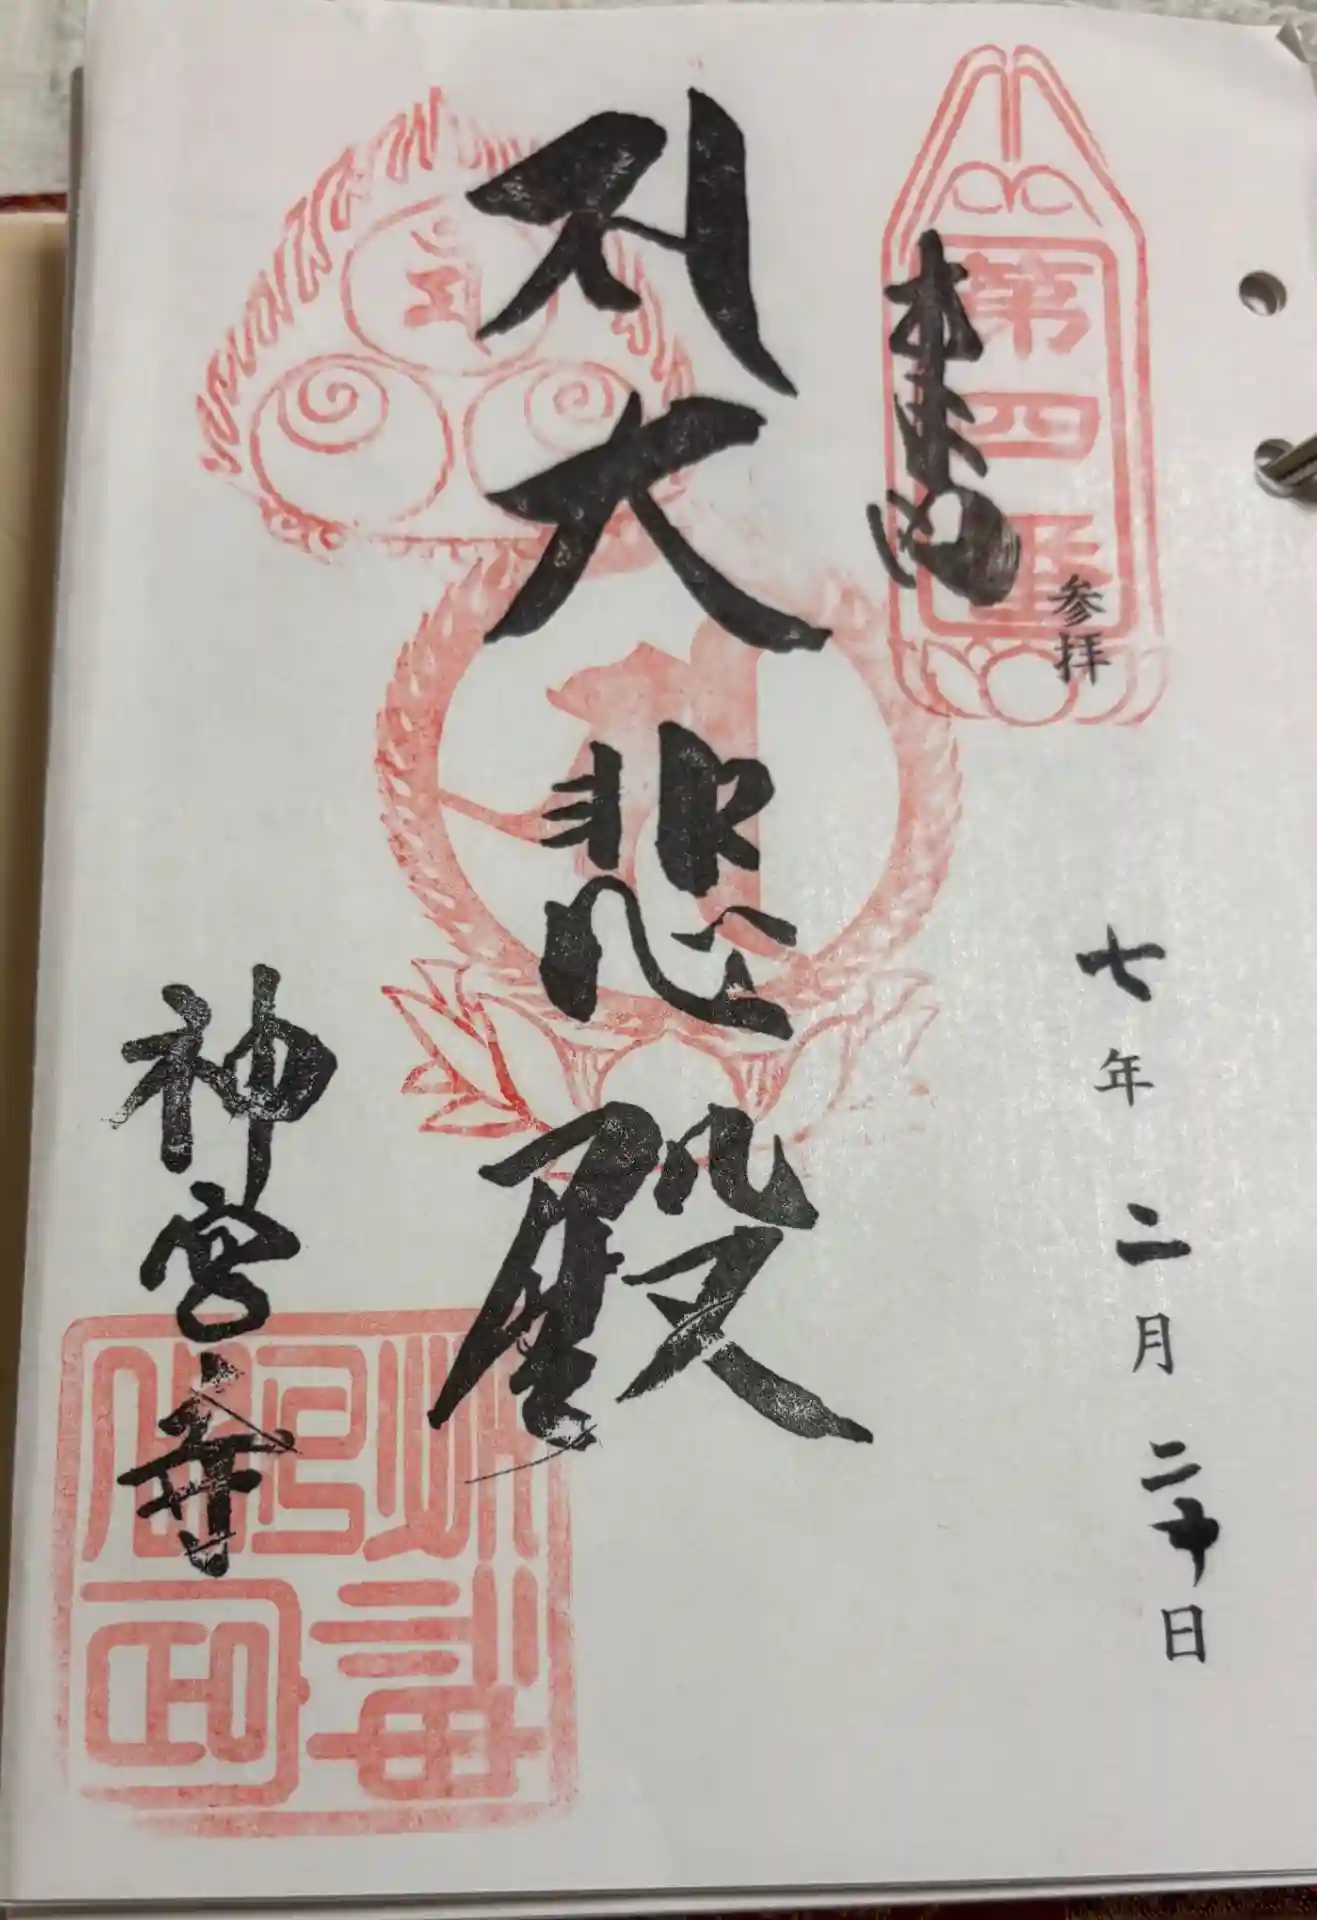 奉拝
第四番
参拝
七年二月二十日
大悲殿
神宮寺